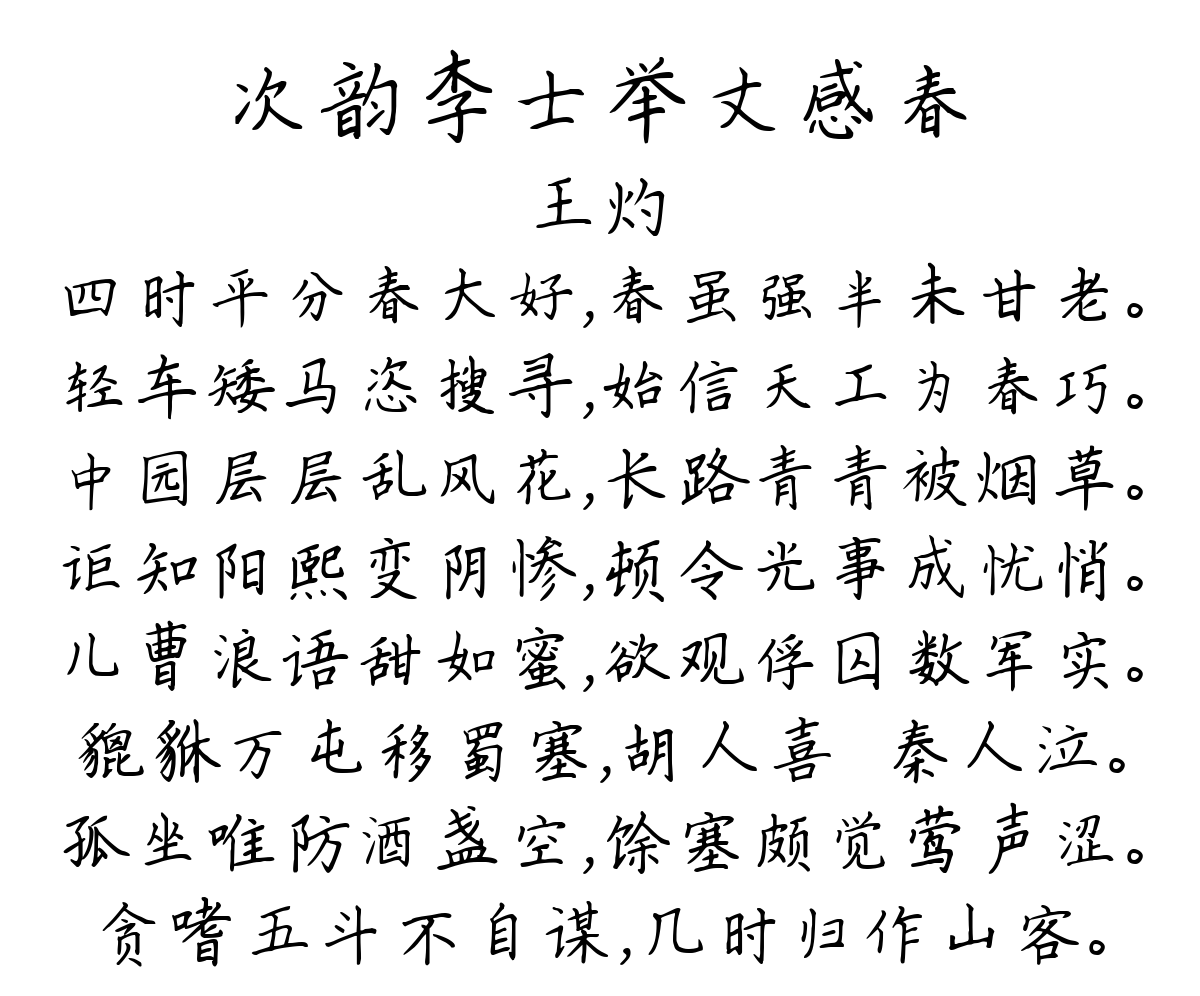 次韵李士举丈感春
王灼
四时平分春大好,春虽强半未甘老。
轻车矮马恣搜寻,始信天工为春巧。
中园层层乱风花,长路青青被烟草。
讵知阳熙变阴惨,顿令光事成忧悄。
儿曹浪语甜如蜜,欲观俘囚数军实。
貔貅万屯移蜀塞,胡人喜 秦人泣。
孤坐唯防酒盏空,馀塞颇觉莺声涩。
贪嗜五斗不自谋,几时归作山客。